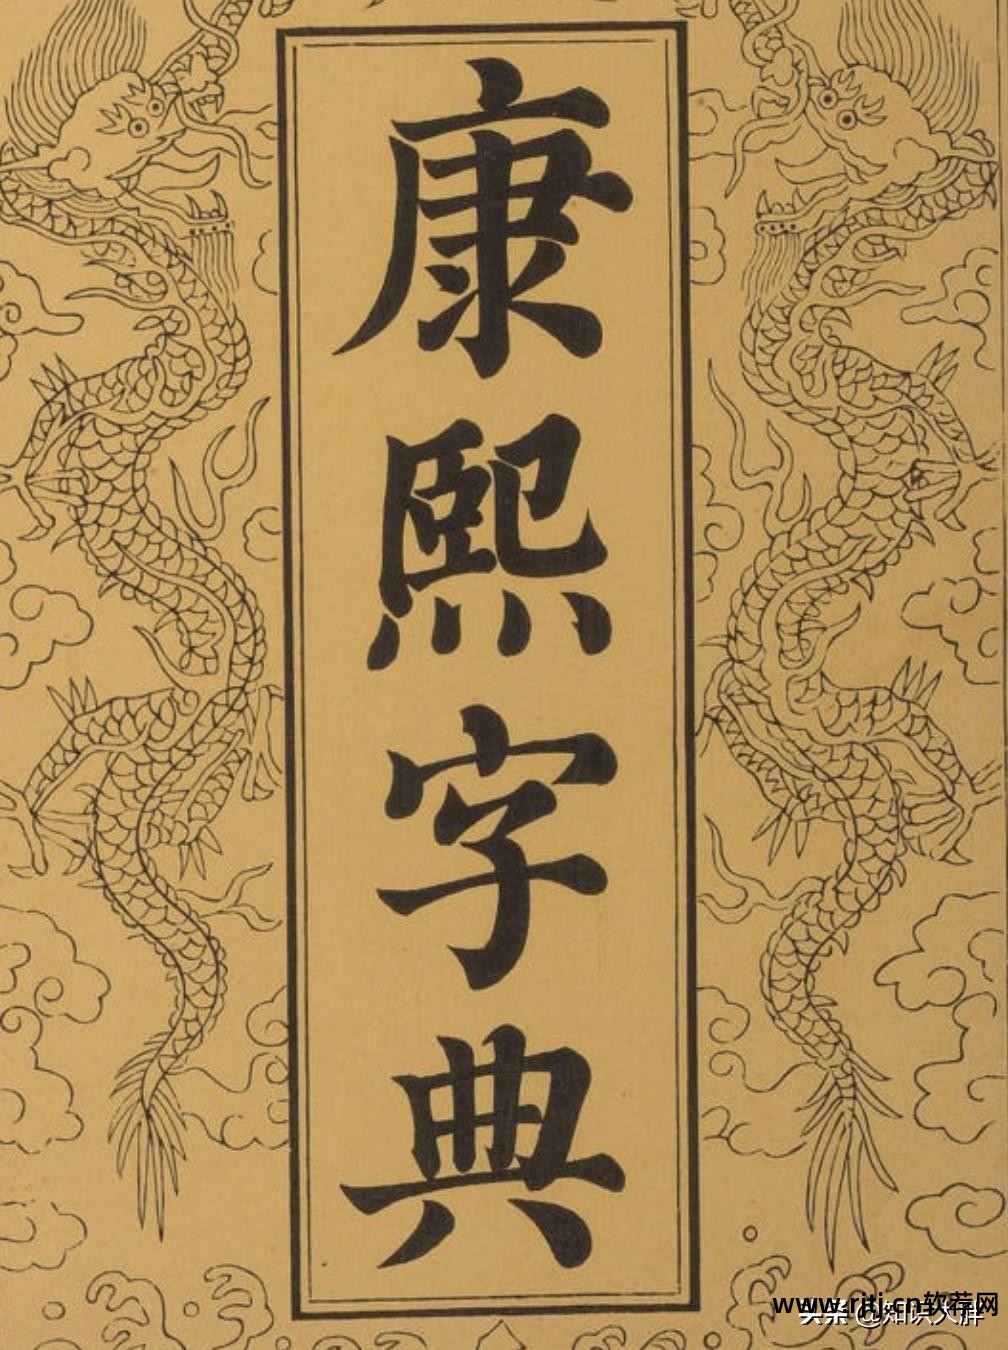 康熙字典
www.rjtj.cn软荐网
头条 @知识大胖